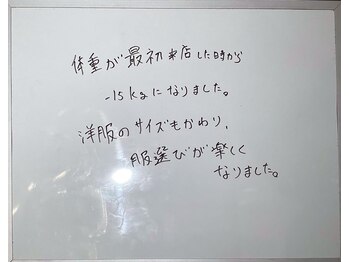 体重が最初来店した時から
-15kgになりました。
洋服のサイズもかわり、
服選びが楽しく
なりました。